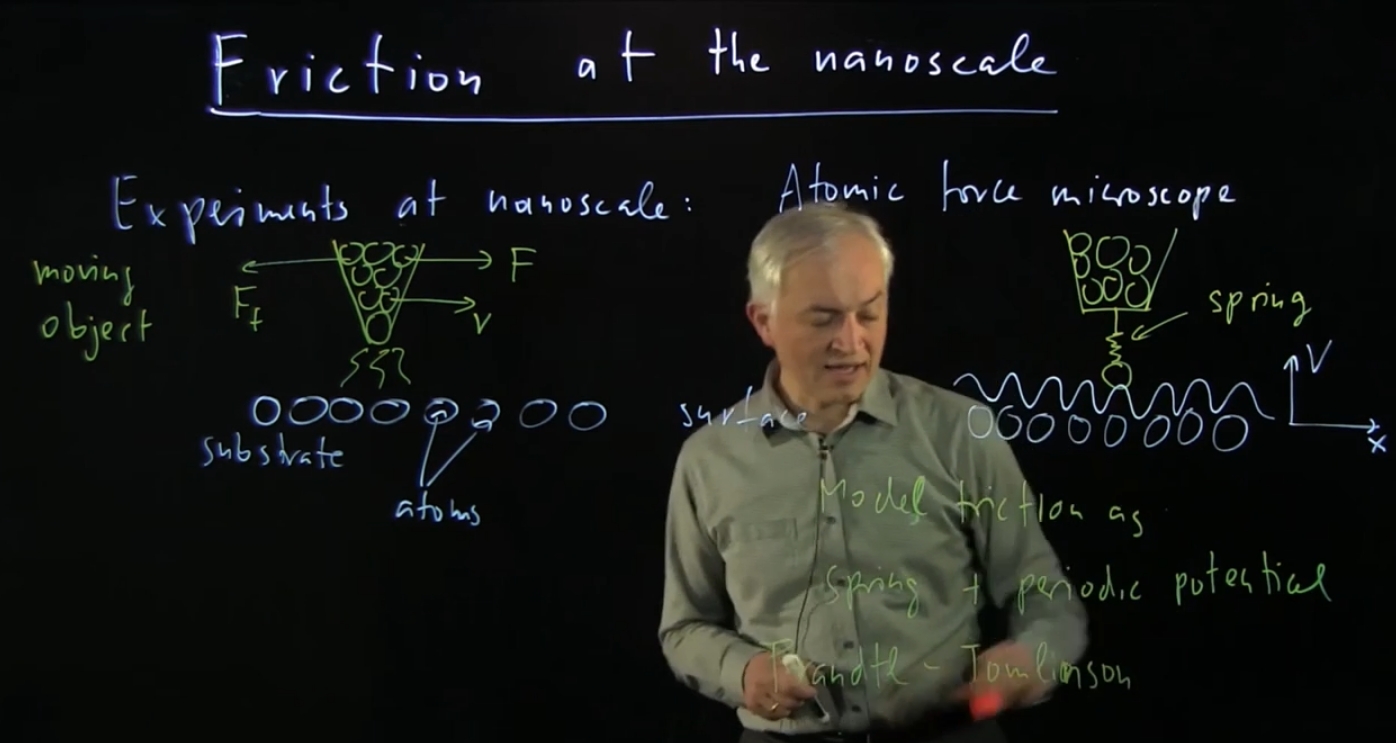 Friction at the nanoscale
Experiments at nanoscale: Atomic force microscope
moving
object
F
F_f
v
spring
V
x
substrate
surface
atoms
Model friction as
Spring + periodic potential
Prandtl - Tomlinson